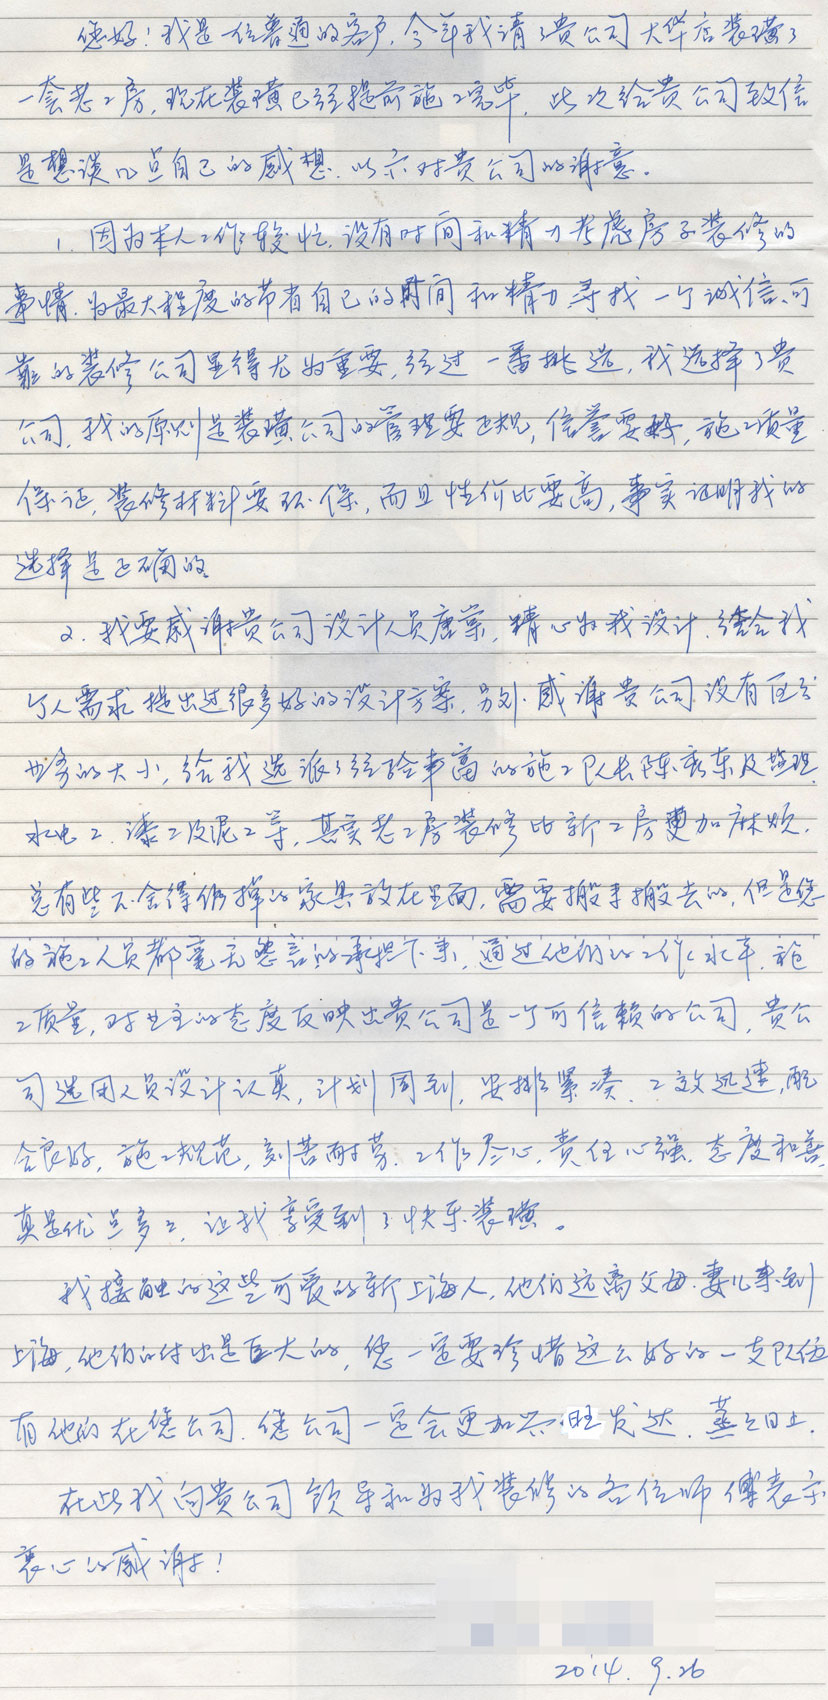 您好！我是一位普通的客户，今年我请了贵公司大华店装璜了
一套老工房，现在装璜已经提前施工完毕，此次给贵公司致信
是想谈几点自己的感想，以示对贵公司的谢意。
1. 因为本人工作较忙，没有时间和精力考虑房子装修的
事情，为最大程度的节省自己的时间和精力，寻找一个诚信、可
靠的装修公司显得尤为重要，经过一番挑选，我选择了贵
公司，我的原则是装璜公司的管理要正规，信誉要好，施工质量
保证，装修材料要环保，而且性价比要高，事实证明我的
选择是正确的。
2. 我要感谢贵公司设计人员唐棠，精心为我设计，结合我
个人需求提出过很多好的设计方案，另外，感谢贵公司没有区分
业务的大小，给我选派了经验丰富的施工队长陈东及监理、
水电工、漆工及泥工等，其实老工房装修比新工房更加麻烦，
总有些不舍得扔掉的家具放在里面，需要搬来搬去的，但是您
的施工人员都毫无怨言的承担下来，通过他们的工作水平、施
工质量，对业主的态度反映出贵公司是一个可信赖的公司，贵公
司选用人员设计认真，计划周到，安排紧凑，工效迅速，配
合良好，施工规范，刻苦耐劳，工作尽心，责任心强，态度和善，
真是优点多多，让我享受到了快乐装璜。
我接触的这些可爱的新上海人，他们远离父母、妻儿来到
上海，他们的付出是巨大的，您一定要珍惜这么好的一支队伍
有他的在您公司，您公司一定会更加兴旺发达，蒸蒸日上。
在此我向贵公司领导和为我装修的各位师傅表示
衷心的感谢！
2014.9.26